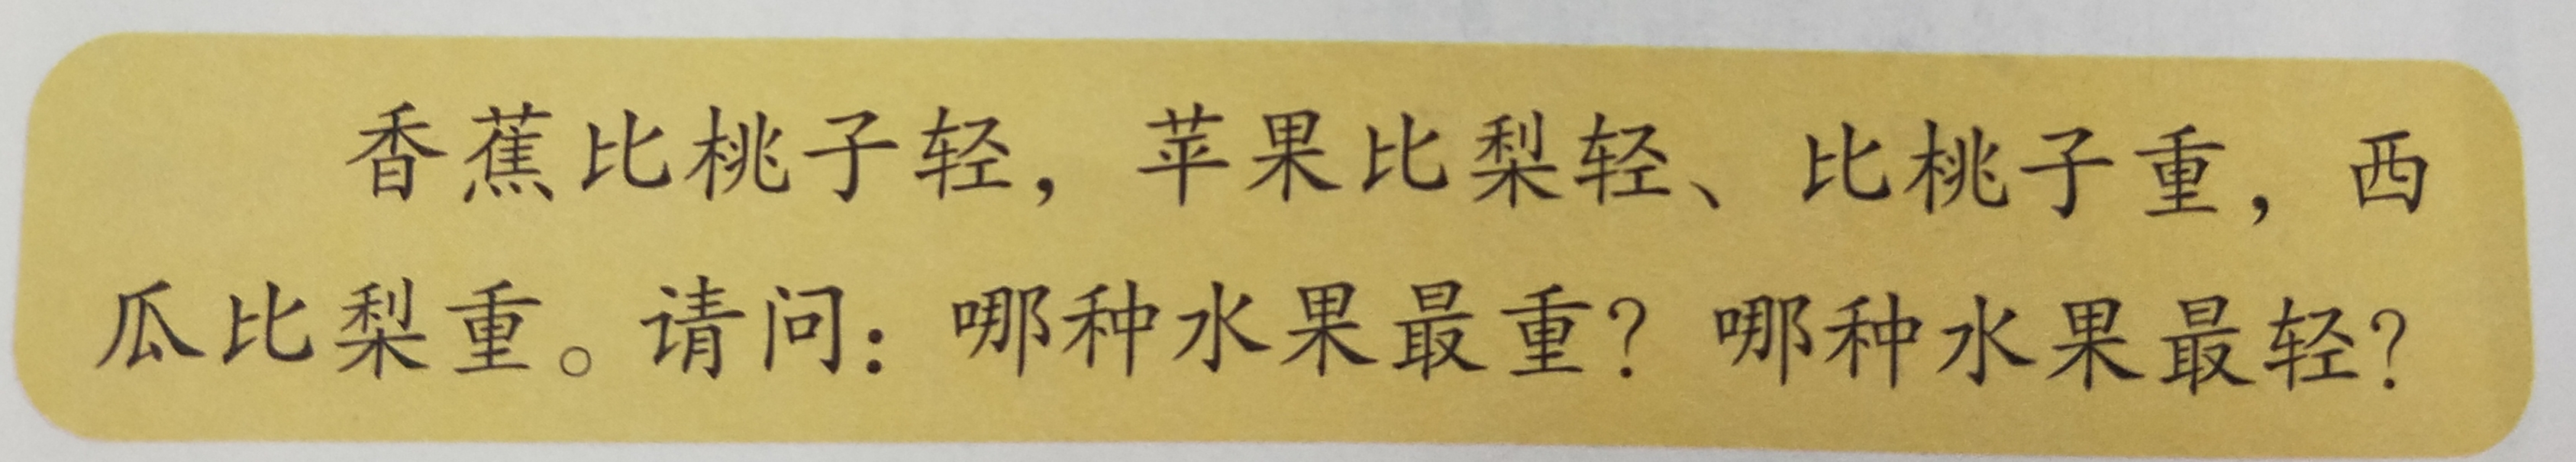 香蕉比桃子轻，苹果比梨轻、比桃子重，西
瓜比梨重。请问：哪种水果最重？哪种水果最轻？